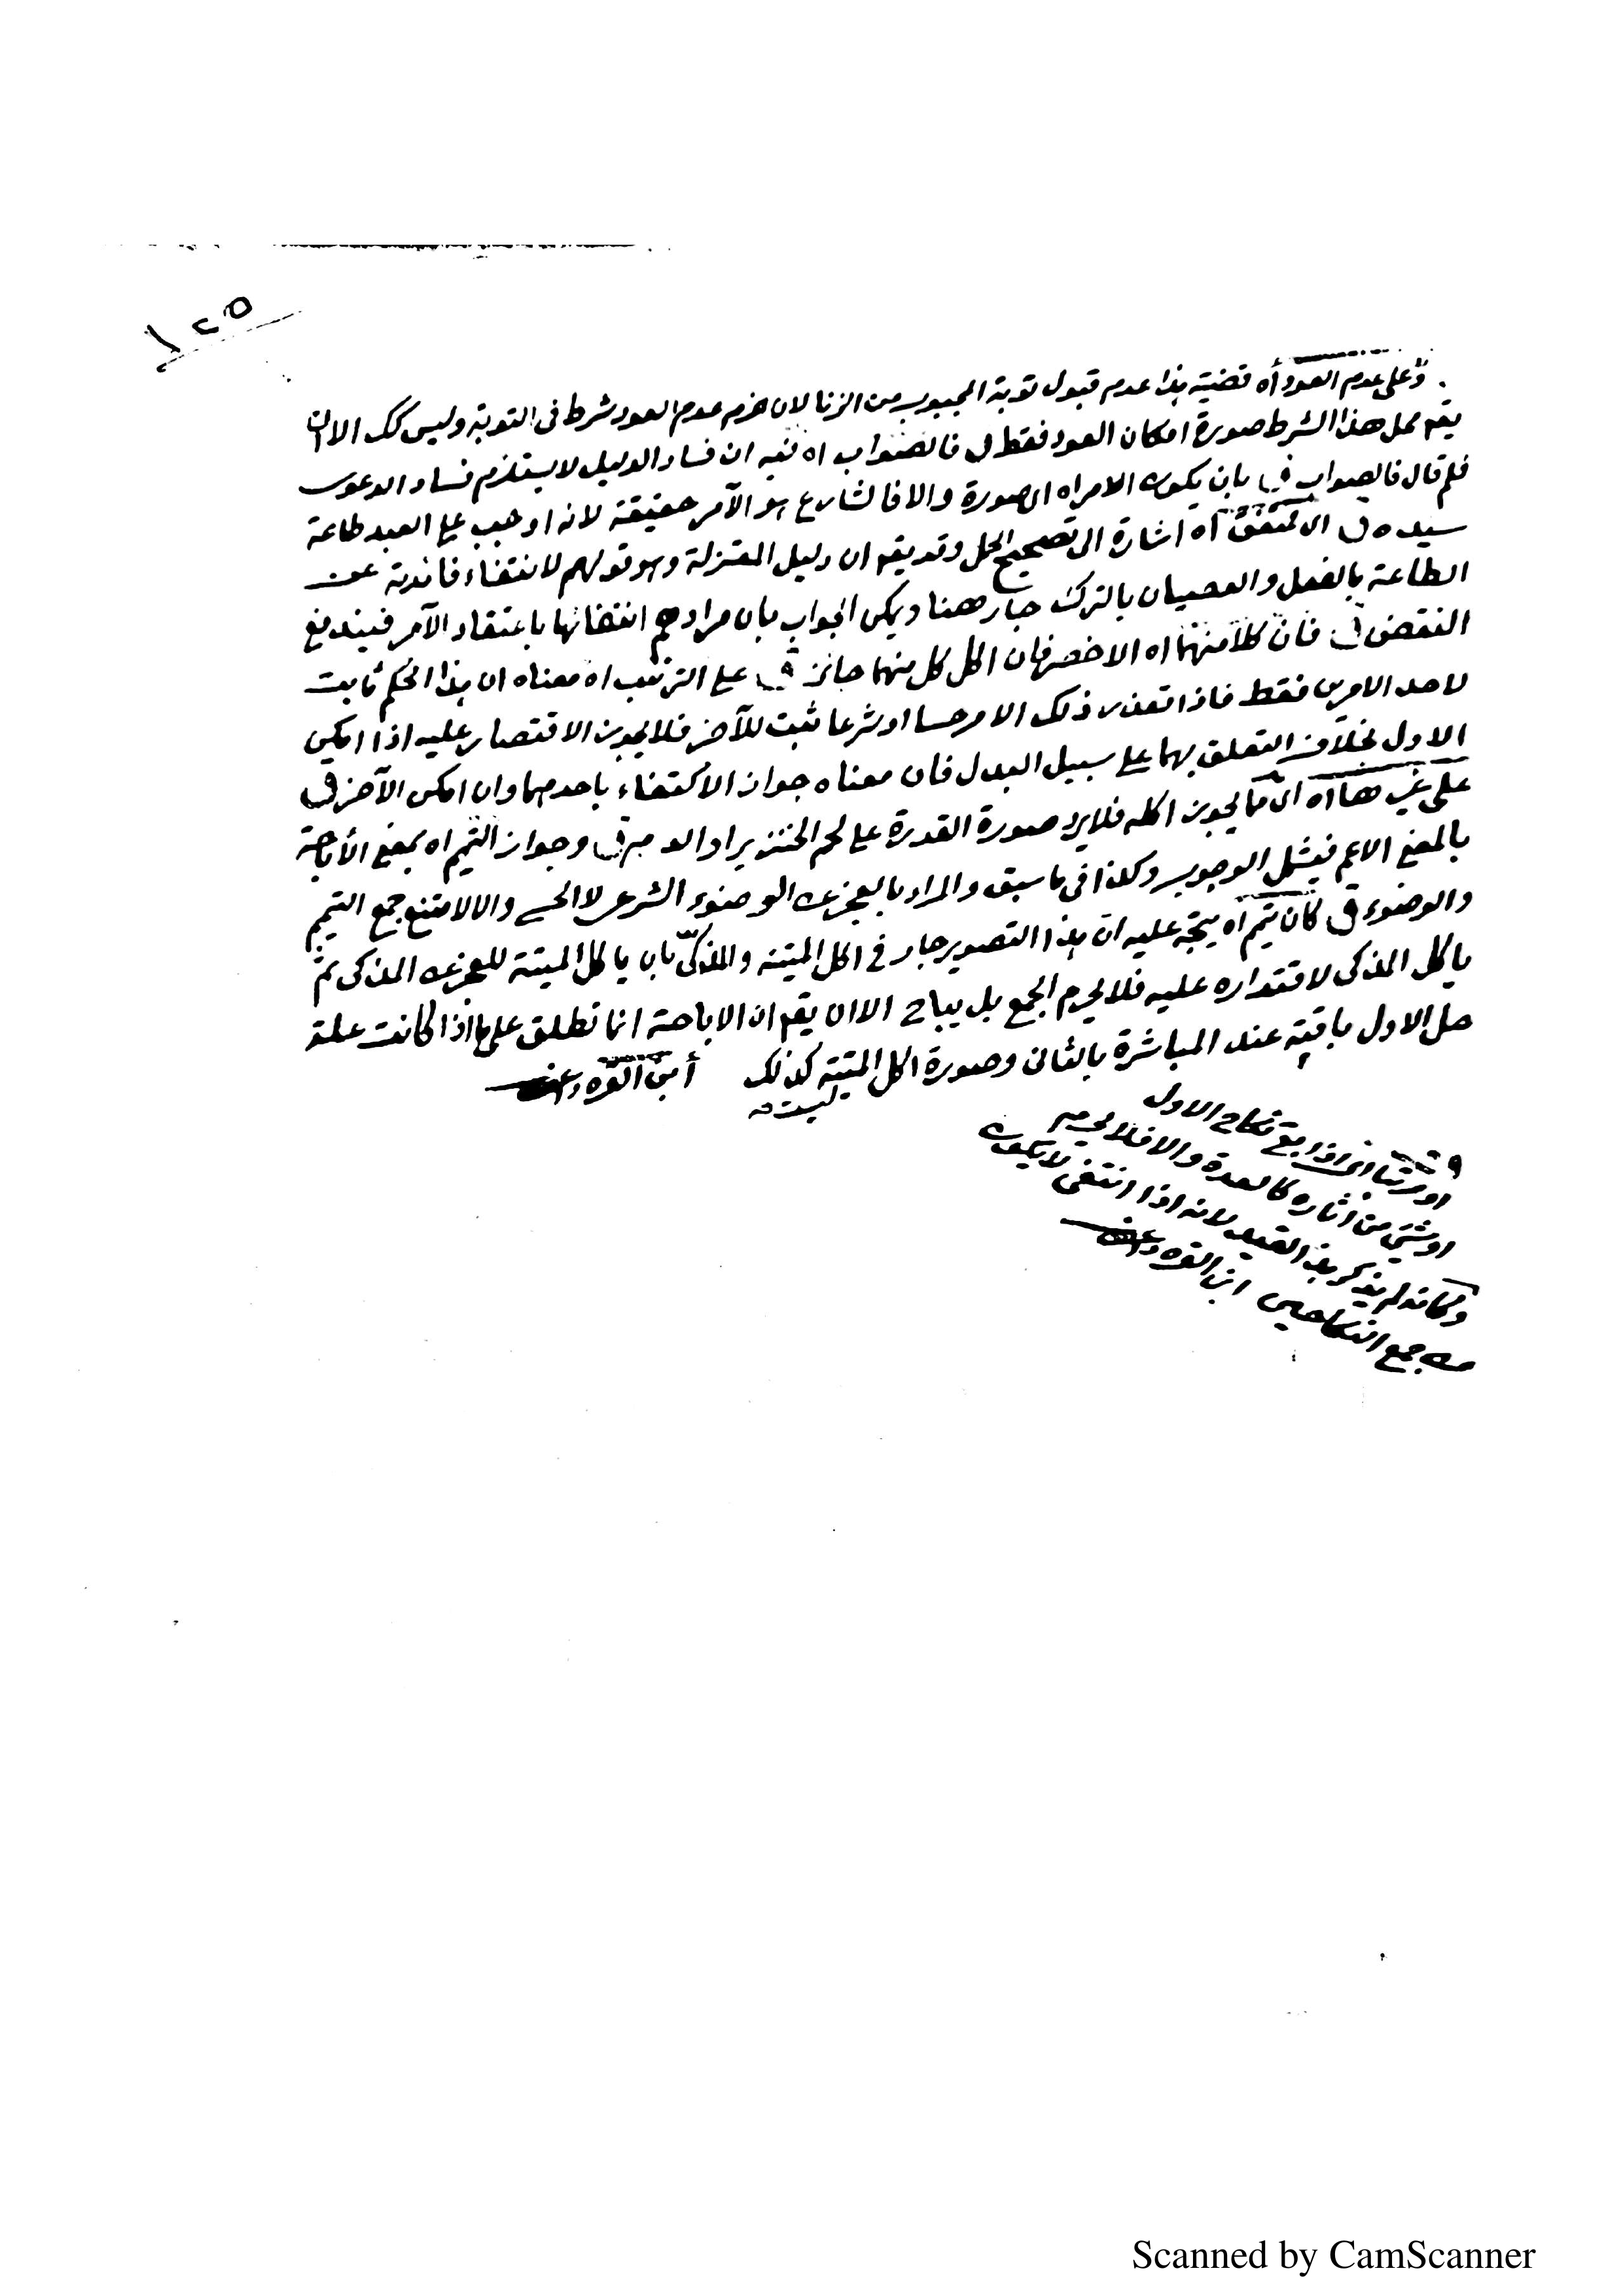 ١٢٥
على عدم العود أه قضيته هذا عدم قبول توبة المجبوب من الزنا لان عزم عدم العود شرط فى التوبة وليس كك الا ان
يقم محل هذا الشرط صورة امكان العود فقط فالصواب اه فيه ان فساد الدليل لا يستلزم فساد الدعوى
فلم قال فالصواب بان يكون الامر اه اى صورة والا فالشارع هو الآمر حقيقة لانه اوجب على العبد طاعة
سيده اه اشارة الى تصحيح الحمل وقد يقم ان دليل المعتزلة وهو قولهم لانتفاء فائدته عن
الطاعة بالفعل والعصيان بالترك جار ههنا ويمكن الجواب بان مرادهم انتفائها باعتقاد الآمر فيندفع
النقض فان كلا منهما اه الاخصر فان اكل كل منهما جائز على الترتيب اه معناه ان هذا الحكم ثابت
لاحد الامرين فقط فاذا تعذر ذلك الامر حسا او شرعا ثبت للآخر فلا يجوز الاقتصار عليه اذا امكن
الاول بخلاف التعلق بهما على سبيل البدل فان معناه جواز الاكتفاء باحدهما وان امكن الآخر
على غيرها اه اى مما يجوز اكله فلا يرد صورة القدرة على لحم الخنزير وجواز التيمم اه بمعنى الأباحة
بالمعنى الاعم فيشمل الوجوب وكذا فى ما سبق والمراد بالعجز عن الوضوء الشرعى لا الحسى والا لامتنع جمع التيمم
والوضوء كان تيمم اه يتجه عليه ان هذا التصوير جار فى اكل الميتة والمذكى بان ياكل الميتة للعجز عن المذكى ثم
ياكل المذكى لاقتداره عليه فلا يحرم الجمع بل يباح الا ان يقم ان الاباحة انما تطلق على ما اذا كانت علة
حل الاول باقية عند المباشرة بالثانى وصورة اكل الميتة ليست كذلك
نكاح الاول
او شيئ من آثاره كالعدة والا فلا
لم يذكر هذا القيد لانه اذا انتفى لا يكون
من جمع النكاحين
Scanned by CamScanner